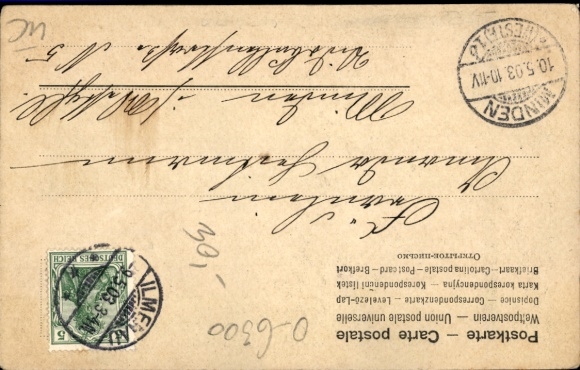 Postkarte — Carte postale
Weltpostverein — Union postale universelle
Dopisnice — Correspondenzkarte — Levelező-Lap
Karta korespondencyjna — Korespondenční lístek
Briefkaart — Cartolina postale — Post card — Brefkort
Открытое письмо
DEUTSCHES REICH
5
ILMENAU
9.5.03. 3-4N.
MINDEN
(WESTF.) 1
10.5.03. 10-11V.
Fräulein
Minden i/Westf.
N 5
30,-
0-6300